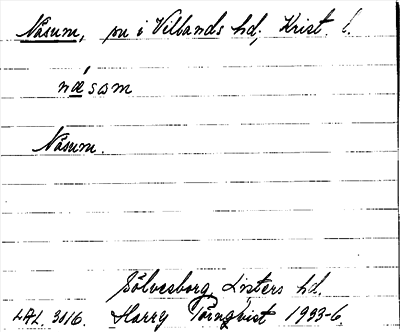 Näsum, sn i Villands hd, Krist. l.
næ´sɑm
Näsum.
Sölvesborg, Listers hd.
LAL. 3016. Harry Törnqvist 1933-6